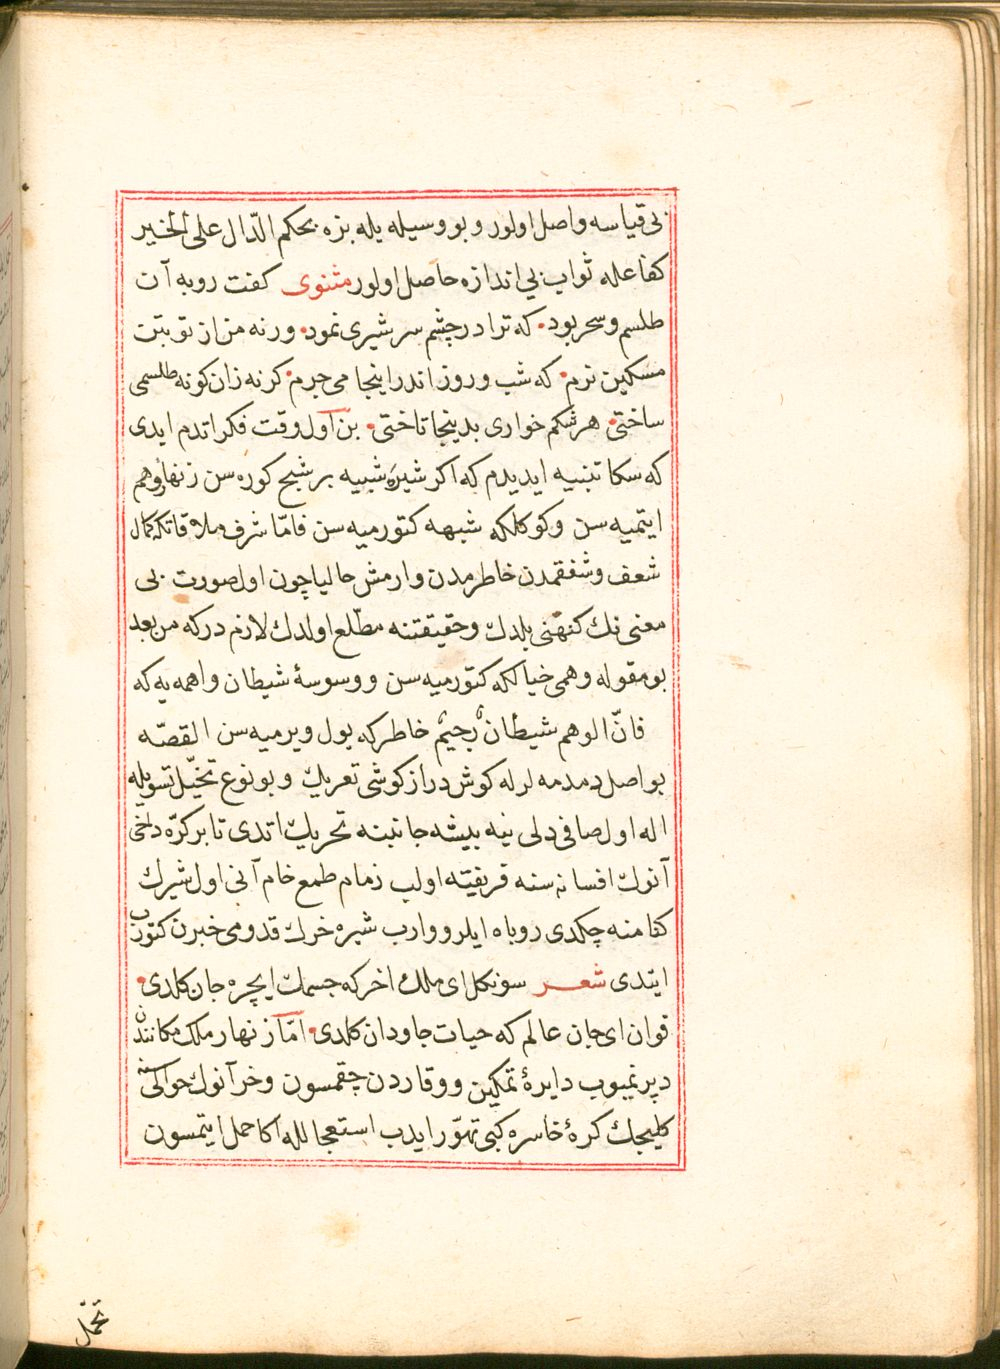 بی قیاسه واصل اولور و بو وسیله یله بزه بحکم الدّال علی الخیر
کفاعله ثواب بی اندازه حاصل اولور مثنوی کفت روبه آن
طلسم و سحر بود که ترا در چشم سر شیری نمود ورنه من از تو بتن
مسکین ترم که شب و روز اندر اینجا می چرم کرنه زان کونه طلسمی
ساختی هر شکم خواری بدینجا تاختی بن اول وقت فکر اتدم ایدی
که سکا تنبیه ایدیدم که اکر شیره شبیه بر شبح کوره سن زنهار وهم
ایتمیه سن و کوکلکه شبهه کتورمیه سن فامّا شرف ملاقاتکه کمال
شعف و شفقمدن خاطرمدن وارمش حالیا چون اول صورت بی
معنی نك کنهنی بلدك و حقیقتنه مطّلع اولدك لازم در که من بعد
بو مقوله وهمی خیالکه کتورمیه سن و وسوسهٔ شیطان واهمه یه که
فانّ الوهم شیطان رجیم خاطرکه یول ویرمیه سن القصّه
بو اصل دمدمه لر له کوش دراز کوشی تعریك و بو نوع تخیّل تسویله
اله اول صافی دلی ینه بیشه جانبنه تحریك اتدی تا بر کرّه داخی
آنوك افسانه سنه فریفته اولب زمام طمع خام آنی اول شیرك
کنامنه چکدی روباه ایلرو وارب شیره خرك قدومی خبرن کتورب
ایتدی شعر سونکل ای ملك اخر که جسمك ایچره جان کلدی
قوان ای جان عالم که حیات جاودان کلدی امّا زنهار ملك مکانندن
دپرنمیوب دایرهٔ تمکین و وقاردن چقمسون و خر آنوك حوالیسنه
کلیجك کرهٔ خاسره کبی تهوّر ایدب استعجالله اکا حمل ایتمسون
تحمّل